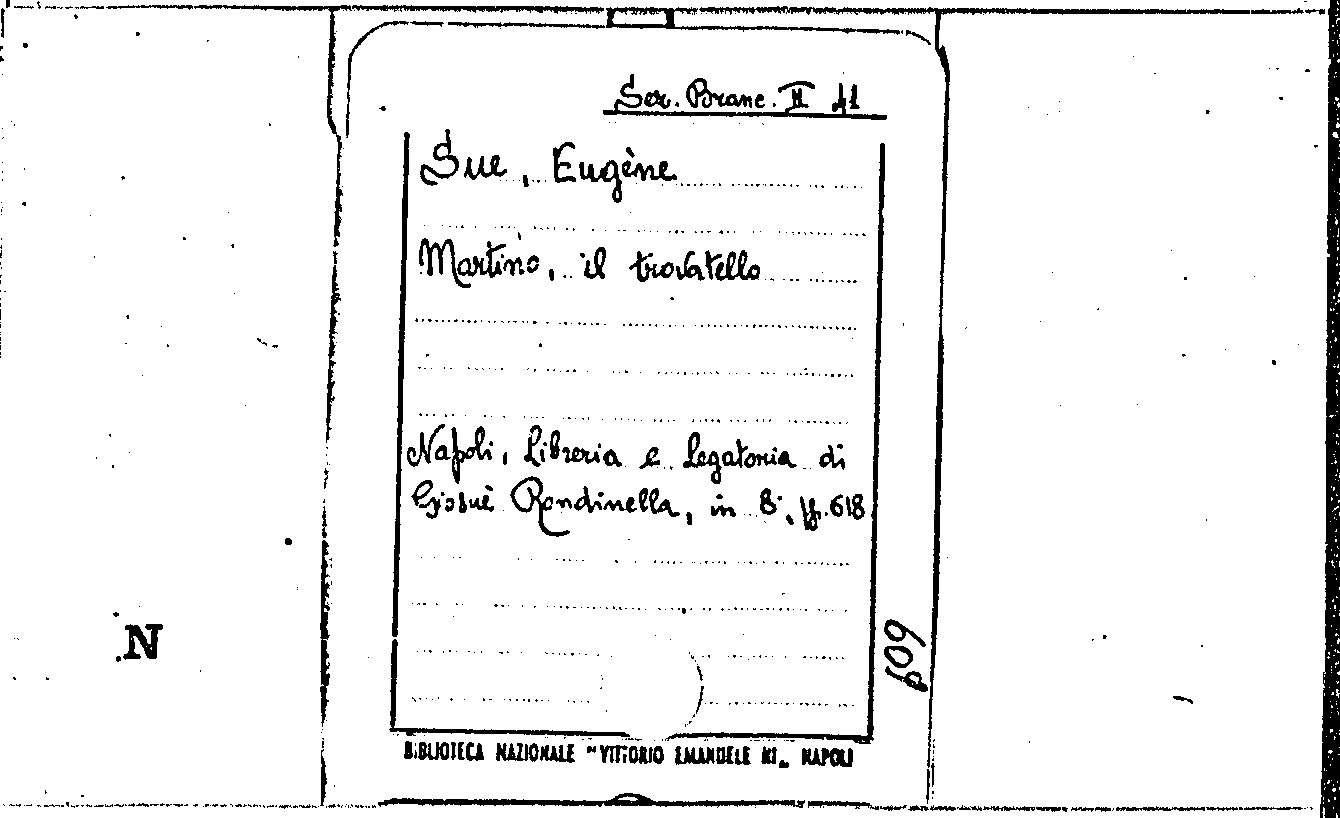 Ser. Branc. II A1
Sue, Eugène
Martino, il trovatello
Napoli, Libreria e Legatoria di
Giosuè Rondinella, in 8°, ff. 618
609
N
BIBLIOTECA NAZIONALE "VITTORIO EMANUELE III" NAPOLI